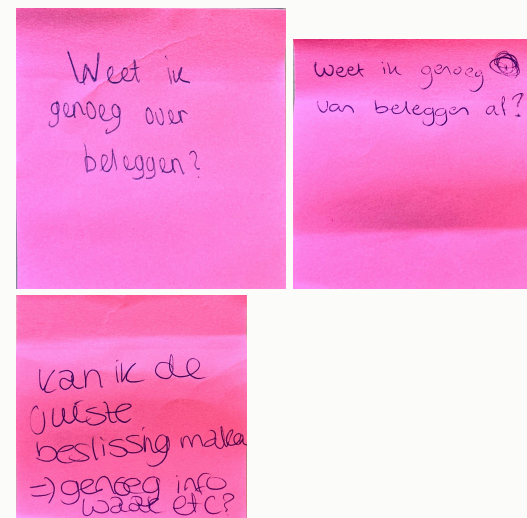 Weet ik
genoeg over
beleggen?
Weet ik genoeg
van beleggen al?
kan ik de
juiste
beslissing maken
=> genoeg info
waar etc?